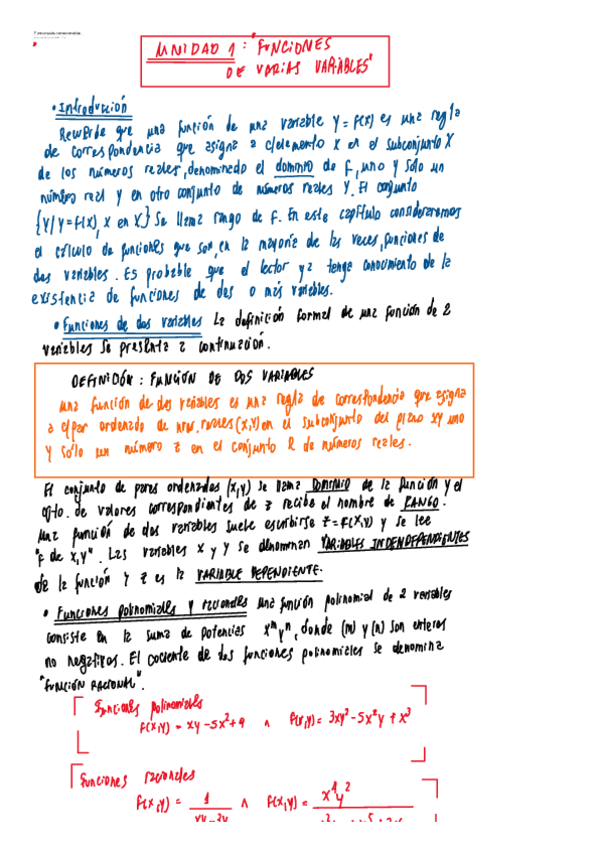 UNIDAD 1: "FUNCIONES
DE VARIAS VARIABLES"
• Introducción
Recuerde que una función de una variable Y = F(x) es una regla
de correspondencia que asigna a c/elemento x en el subconjunto X
de los números reales, denominado el dominio de f, uno y solo un
número real y en otro conjunto de números reales Y. El conjunto
{Y/Y=f(x), x en X} se llama rango de f. En este capítulo consideraremos
el cálculo de funciones que son, en la mayoría de las veces, funciones de
dos variables. Es probable que el lector ya tenga conocimiento de la
existencia de funciones de dos o más variables.
• Funciones de dos variables La definición formal de una función de 2
variables se presenta a continuación.
DEFINICIÓN: FUNCIÓN DE DOS VARIABLES
una función de dos variables es una regla de correspondencia que asigna
a c/par ordenado de reales (x,y) en el subconjunto del plano xy uno
y sólo un número z en el conjunto R de números reales.
El conjunto de pares ordenados (x,y) se llama DOMINIO de la función y el
cjto. de valores correspondientes de z recibe el nombre de RANGO.
Una función de dos variables suele escribirse z = f(x,y) y se lee
"f de x,y". Las variables x y y se denominan VARIABLES INDENDEPENDIENTES
de la función y z es la VARIABLE DEPENDIENTE.
• Funciones polinomiales y racionales una función polinomial de 2 variables
consiste en la suma de potencias xᵐyⁿ, donde (m) y (n) son enteros
no negativos. El cociente de dos funciones polinomiales se denomina
"FUNCIÓN RACIONAL".
Funciones polinomiales
f(x,y) = xy - 5x² + 9 ∧ f(x,y) = 3xy² - 5x²y + x³
Funciones racionales
f(x,y) = 1 ∧ f(x,y) = x⁴y²